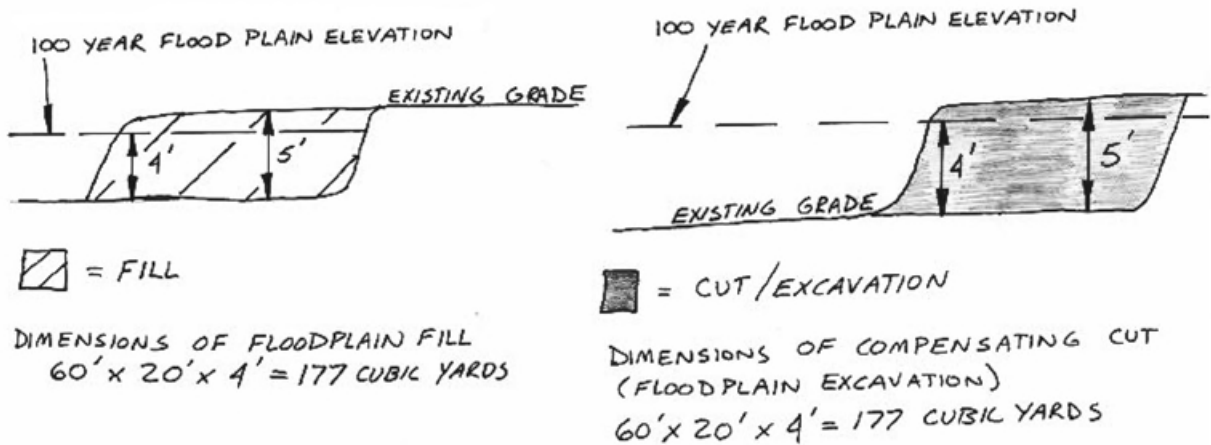 100 YEAR FLOOD PLAIN ELEVATION
EXISTING GRADE
4'
5'
= FILL
DIMENSIONS OF FLOODPLAIN FILL
60' x 20' x 4' = 177 CUBIC YARDS
100 YEAR FLOOD PLAIN ELEVATION
4'
5'
EXISTING GRADE
= CUT/EXCAVATION
DIMENSIONS OF COMPENSATING CUT
(FLOODPLAIN EXCAVATION)
60' x 20' x 4' = 177 CUBIC YARDS